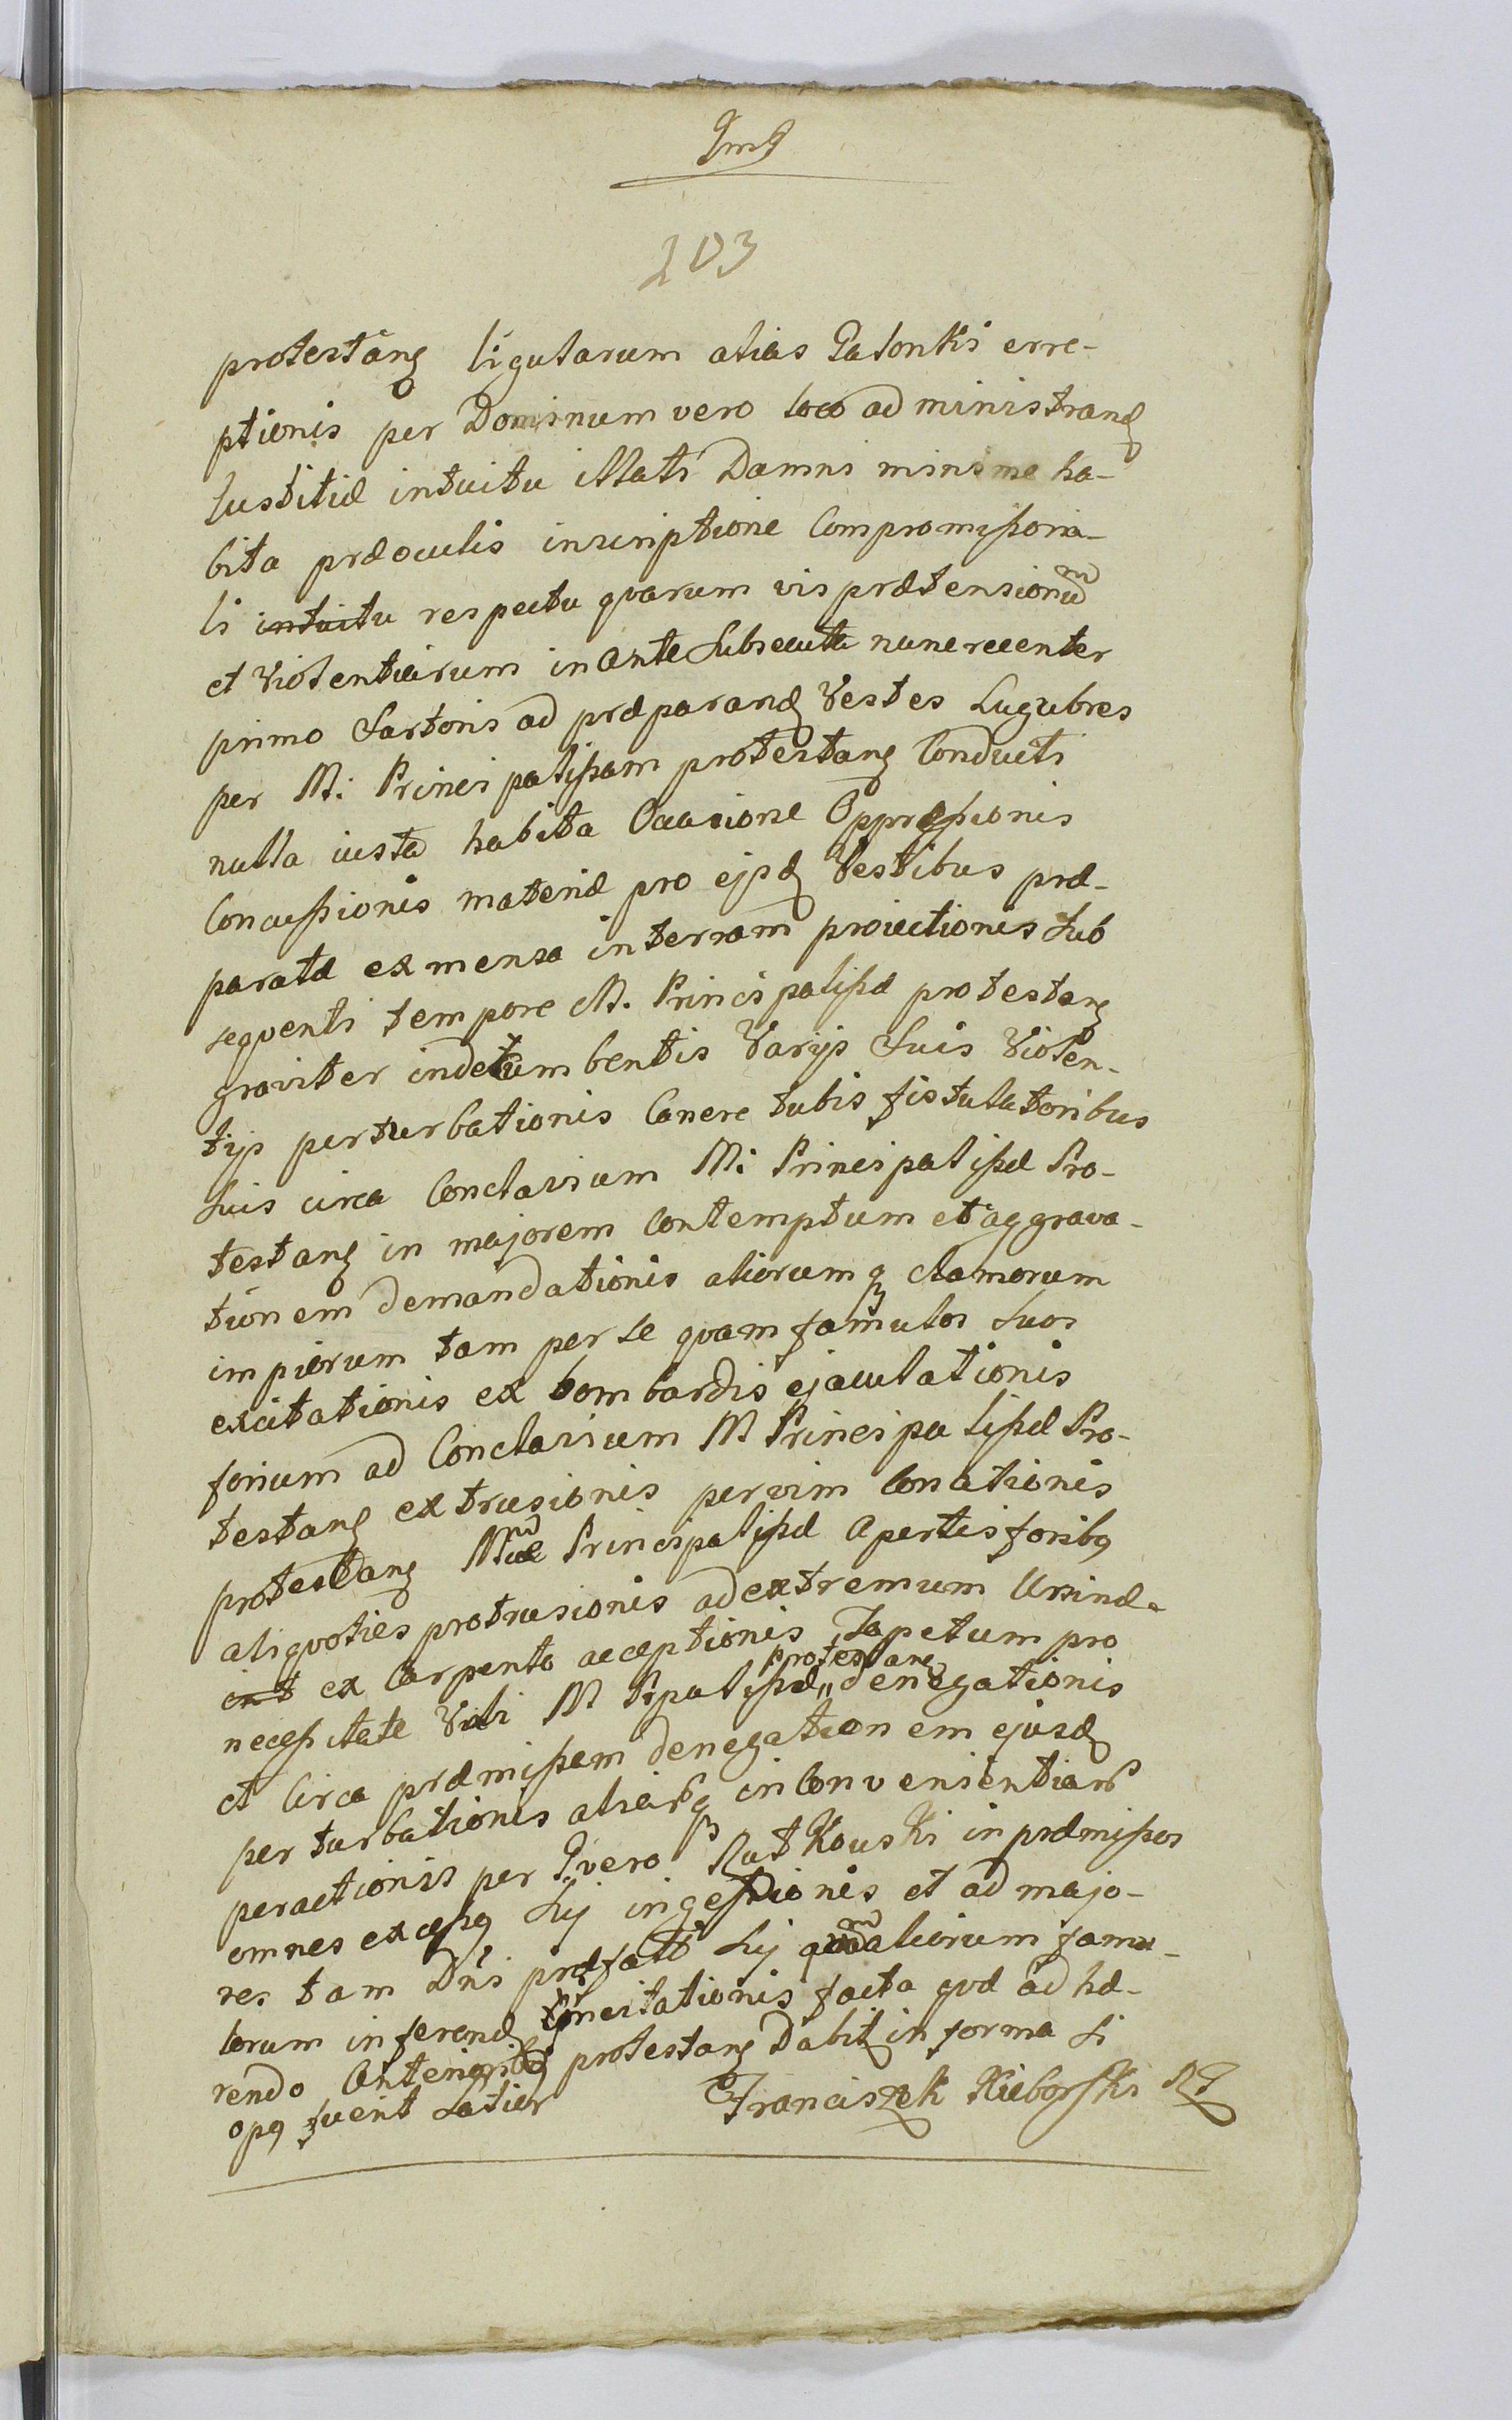 203
protestang ligularum alias Galonki erre-
ptionis per Dominum vero loco administrand
Iustitiæ intuitu illati Damni minime ha-
bita præoculis inscriptione Compromissoria-
li intuitu respectu qvarum vis prætensionum
et Violentiarum in Ante Subsecuta nunc recenter
primo Sartoris ad præparand Vestes Lugubres
per M: Principalissam protestang Conducti
nulla iusta habita Occasione Oppressionis
Concussionis materiæ pro ejsd Vestibus præ-
paratæ ex mensa in terram proiectionis Sub
seqventi tempore M. Principalissæ protestang
graviter indecumbentis Varijs Suis Violen-
tijs perturbationis Canere tubis fistulatoribus
Suis circa Conclavium M: Principalissæ Pro-
testang in majorem Contemptum et aggrava-
tionem demandationis aliorumq clamorum
impiorum tam per se qvam famulos Suos
excitationis ex bombardis ejaculationis
forium ad Conclavium M Principalissæ Pro-
testang extrusionis per vim Conationis
protestang Mcæ Principalissæ Apertis foribq
aliqvoties protrusionis ad extremum Ursinæ
int ex Carpento acceptionis Tapetum pro
necessitate Viti M Ppalissæ protestang denegationis
et Circa præmissam denegationem ejusd
perturbationis aliarq inconvenientiar
peractionis per Gvero Rutkouski in præmissos
omnes excessq Sij ingestionis et ad majo-
res tam Dni præfati Sij qvam aliorum famu-
lorum inferend Concitationis facta qvd ad hæ-
rendo Anterioribq protestang Dabit in forma Si
opq fuerit Latior Franciszek Kieborski